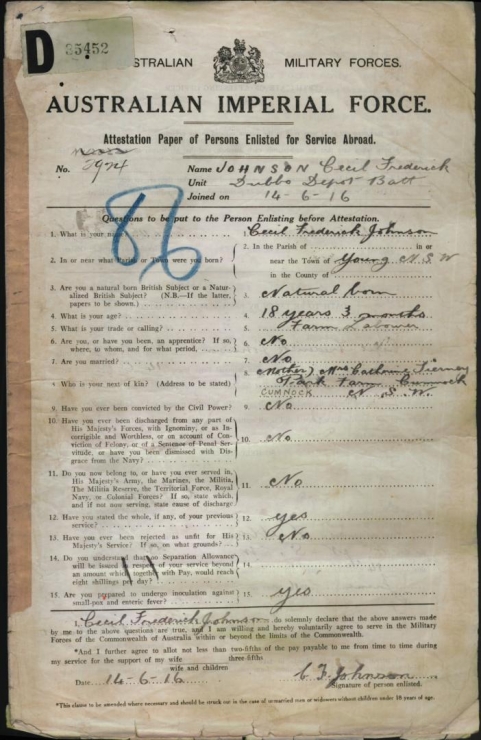 D 35452
AUSTRALIAN MILITARY FORCES.
AUSTRALIAN IMPERIAL FORCE.
Attestation Paper of Persons Enlisted for Service Abroad.
No. 3974
Name JOHNSON Cecil Frederick
Unit Dubbo Depot Batt
Joined on 14-6-16
Questions to be put to the Person Enlisting before Attestation.
86
1. What is your name? Cecil Frederick Johnson
2. In or near what Parish or Town were you born? 2. In the Parish of in or
near the Town of Young N.S.W
in the County of
3. Are you a natural born British Subject or a Natur-
alized British Subject? (N.B.—If the latter,
papers to be shown.) 3. Natural born
4. What is your age? 4. 18 years 3 months
5. What is your trade or calling? 5. Farm Labourer
6. Are you, or have you been, an apprentice? If so,
where, to whom, and for what period. 6. No
7. Are you married? 7. No
8. Who is your next of kin? (Address to be stated) 8. (Mother) Mrs Catherine Tierney
Park Farm Cumnock
CUMNOCK N.S.W.
9. Have you ever been convicted by the Civil Power? 9. No
10. Have you ever been discharged from any part of
His Majesty's Forces, with Ignominy, or as In-
corrigible and Worthless, or on account of Con-
viction of Felony, or of a Sentence of Penal Ser-
vitude, or have you been dismissed with Dis-
grace from the Navy? 10. No
11. Do you now belong to, or have you ever served in,
His Majesty's Army, the Marines, the Militia,
The Militia Reserve, the Territorial Force, Royal
Navy, or Colonial Forces? If so, state which,
and if not now serving, state cause of discharge 11. No
12. Have you stated the whole, if any, of your previous
service? 12. yes
13. Have you ever been rejected as unfit for His
Majesty's Service? If so, on what grounds? 13. No
14. Do you understand that no Separation Allowance
will be issued in respect of your service beyond
an amount which together with Pay, would reach
eight shillings per day? 14.
15. Are you prepared to undergo inoculation against
small-pox and enteric fever? 15. yes
I, Cecil Frederick Johnson do solemnly declare that the above answers made
by me to the above questions are true, and I am willing and hereby voluntarily agree to serve in the Military
Forces of the Commonwealth of Australia within or beyond the limits of the Commonwealth.
*And I further agree to allot not less than two-fifths of the pay payable to me from time to time during
three-fifths
my service for the support of my wife
wife and children
Date 14-6-16 C F Johnson
Signature of person enlisted.
*This clause to be amended where necessary and should be struck out in the case of unmarried men or widowers without children under 18 years of age.